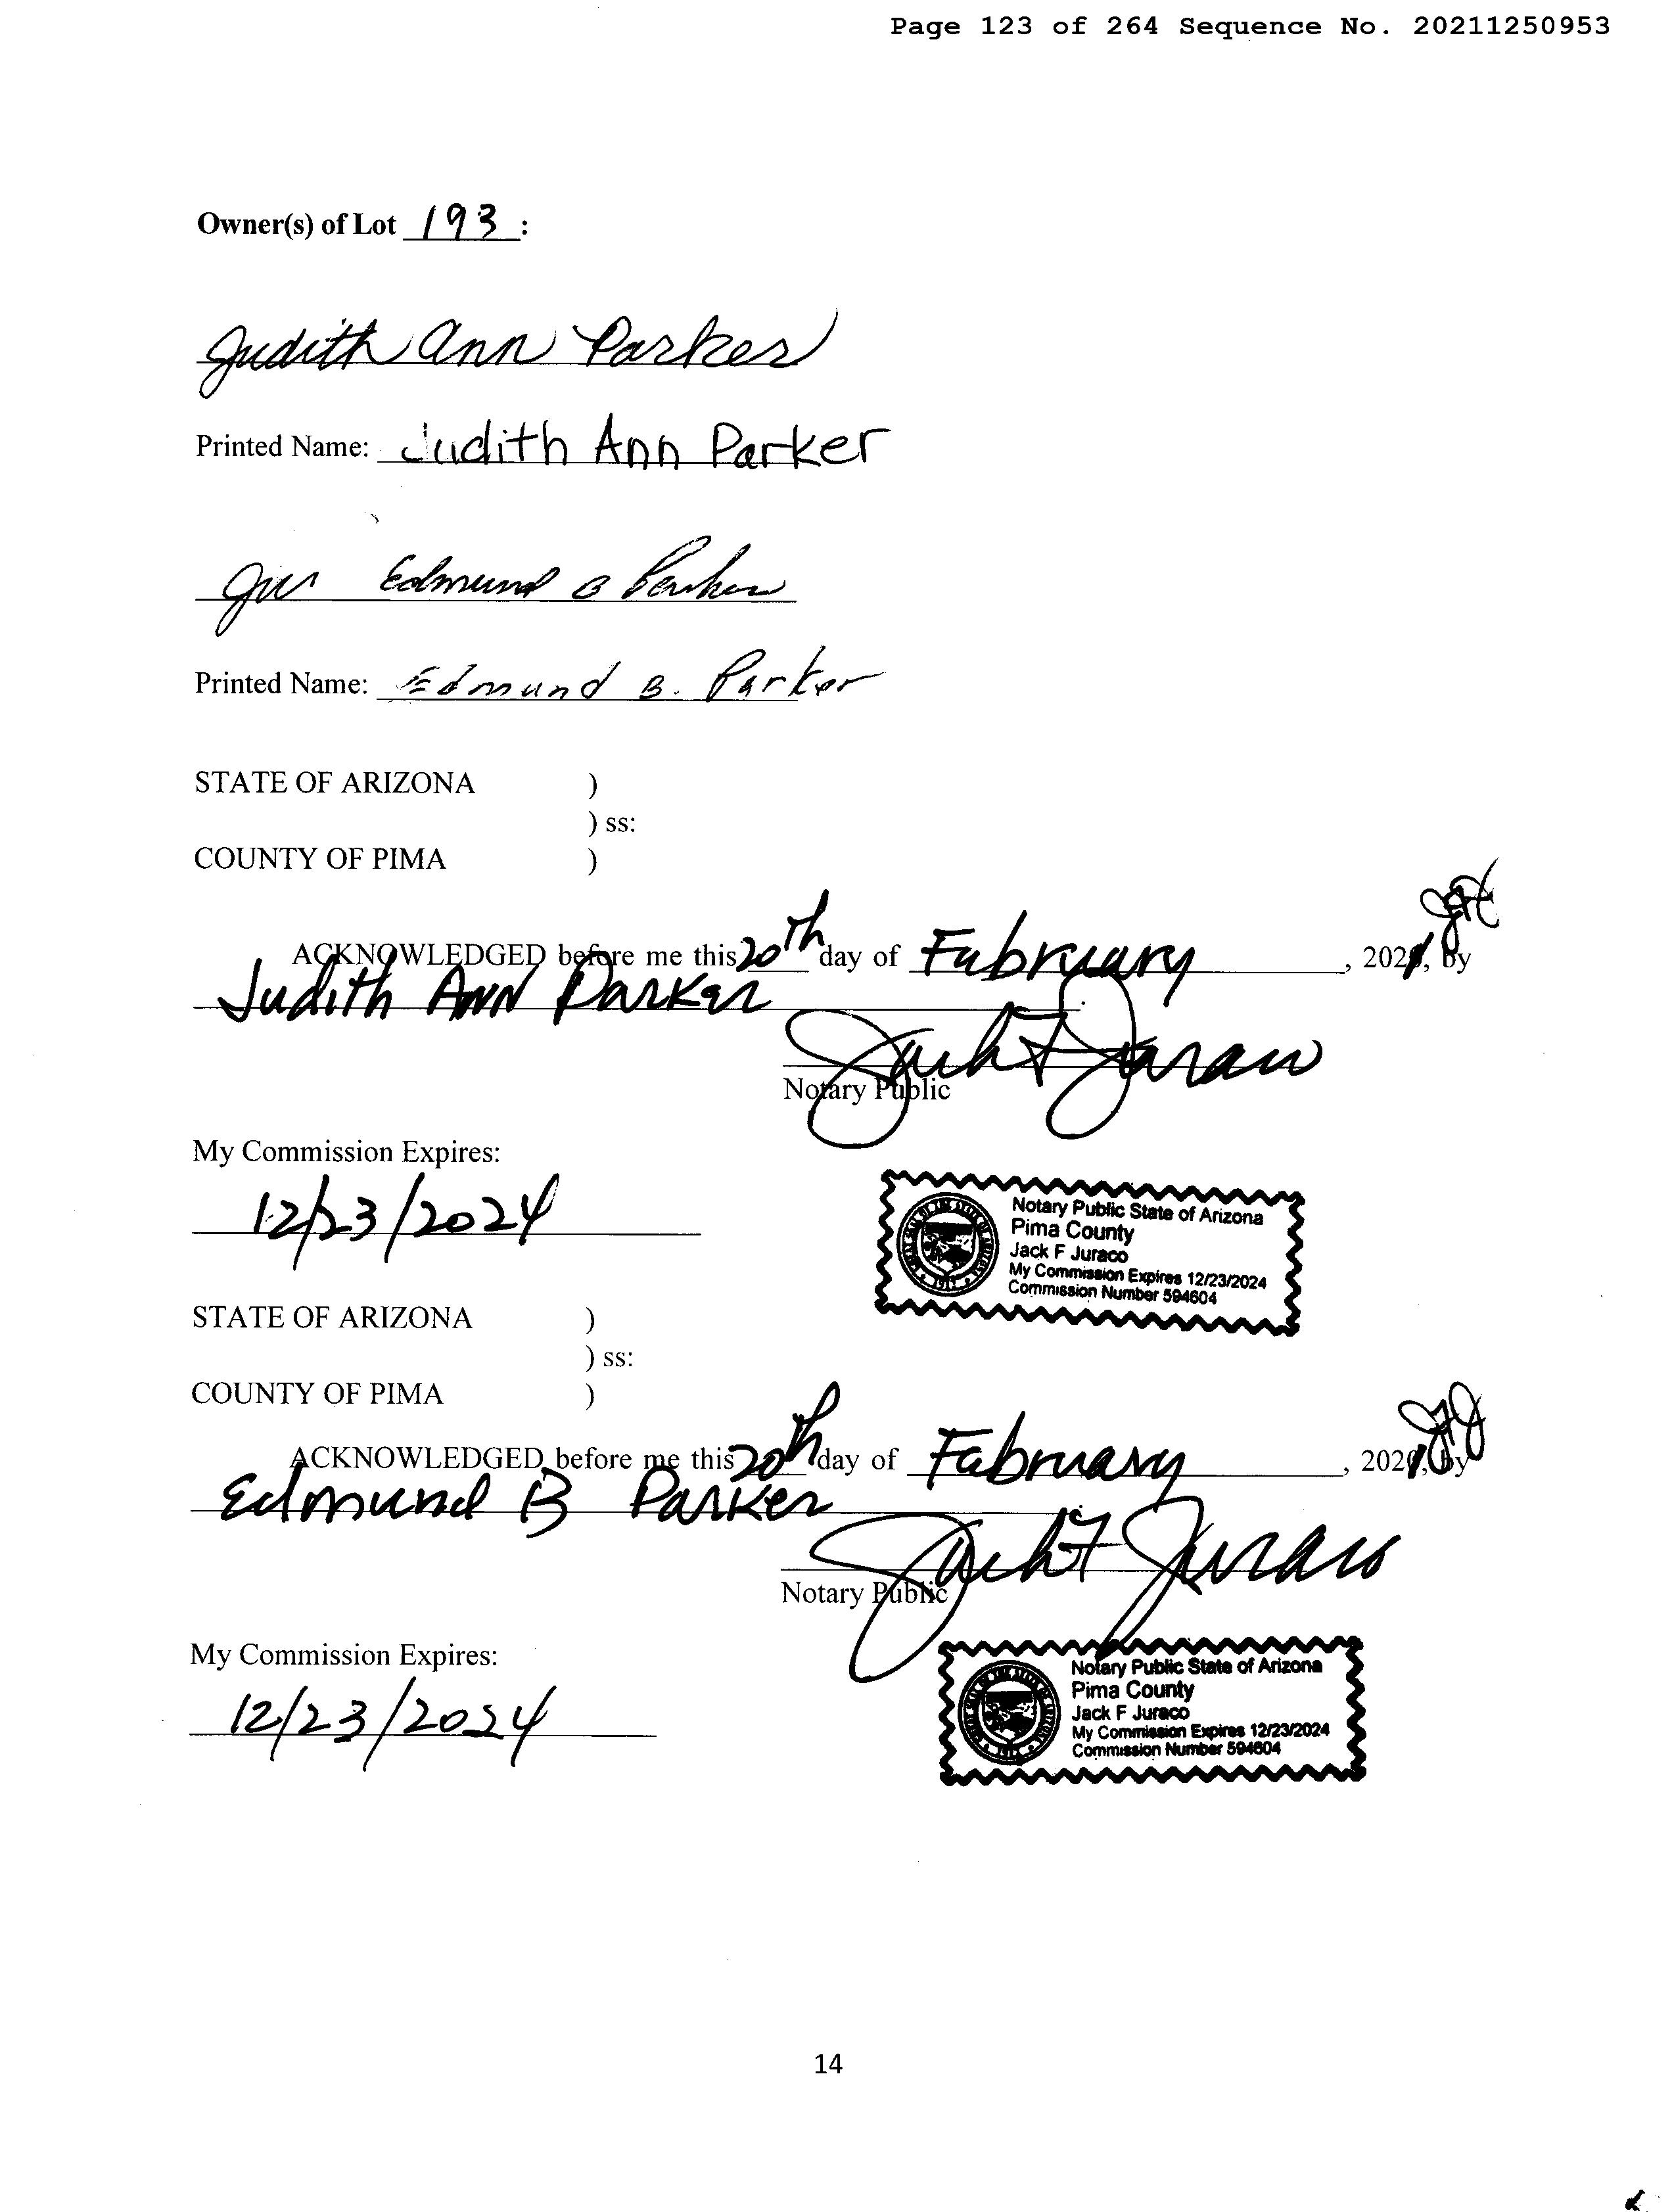 Page 123 of 264 Sequence No. 20211250953
Owner(s) of Lot 193 :
Judith Ann Parker
Printed Name: Judith Ann Parker
Edmund B Parker
Printed Name: Edmund B. Parker
STATE OF ARIZONA )
) ss:
COUNTY OF PIMA )
ACKNOWLEDGED before me this 20th day of February, 2021, by
Judith Ann Parker
Jack F Juraco
Notary Public
My Commission Expires:
12/23/2024
Notary Public State of Arizona
Pima County
Jack F Juraco
My Commission Expires 12/23/2024
Commission Number 594604
STATE OF ARIZONA )
) ss:
COUNTY OF PIMA )
ACKNOWLEDGED before me this 20th day of February, 2021, by
Edmund B Parker
Jack F Juraco
Notary Public
My Commission Expires:
12/23/2024
Notary Public State of Arizona
Pima County
Jack F Juraco
My Commission Expires 12/23/2024
Commission Number 594604
14